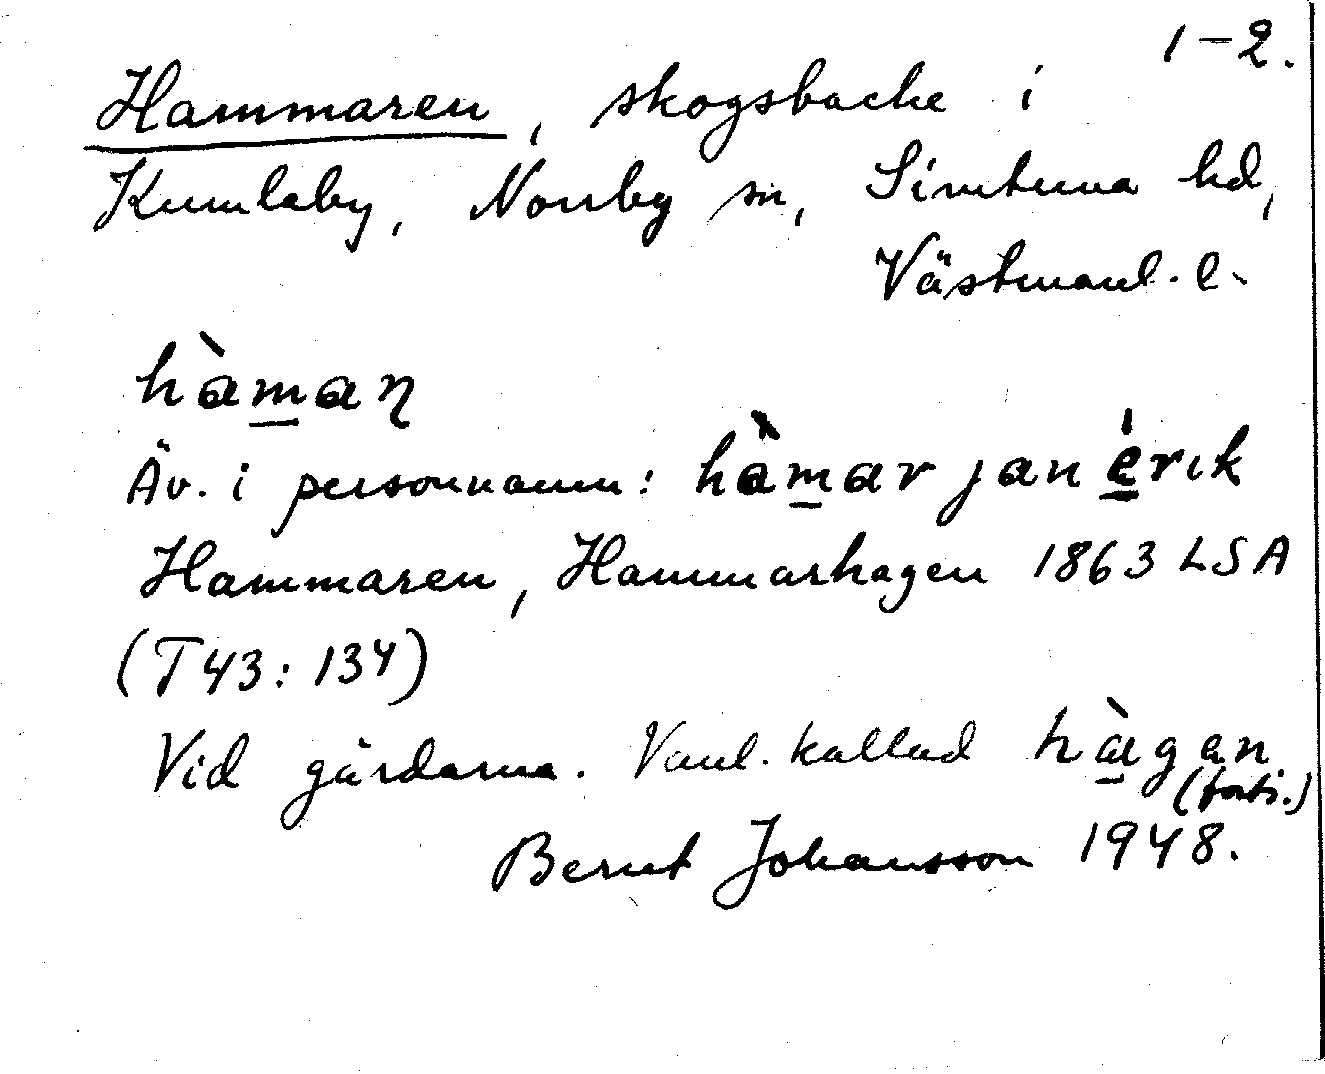 1–2.
Hammaren, skogsbacke i
Kumlaby, Norrby sn, Simtuna hd,
Västmanl. l.
hàmaɳ
Äv. i personnamn: hàmar jan érɪk
Hammaren, Hammarhagen 1863 LSA
(T43: 134)
Vid gårdarna. Vanl. kallad hàgan
(forts.)
Bernt Johansson 1948.